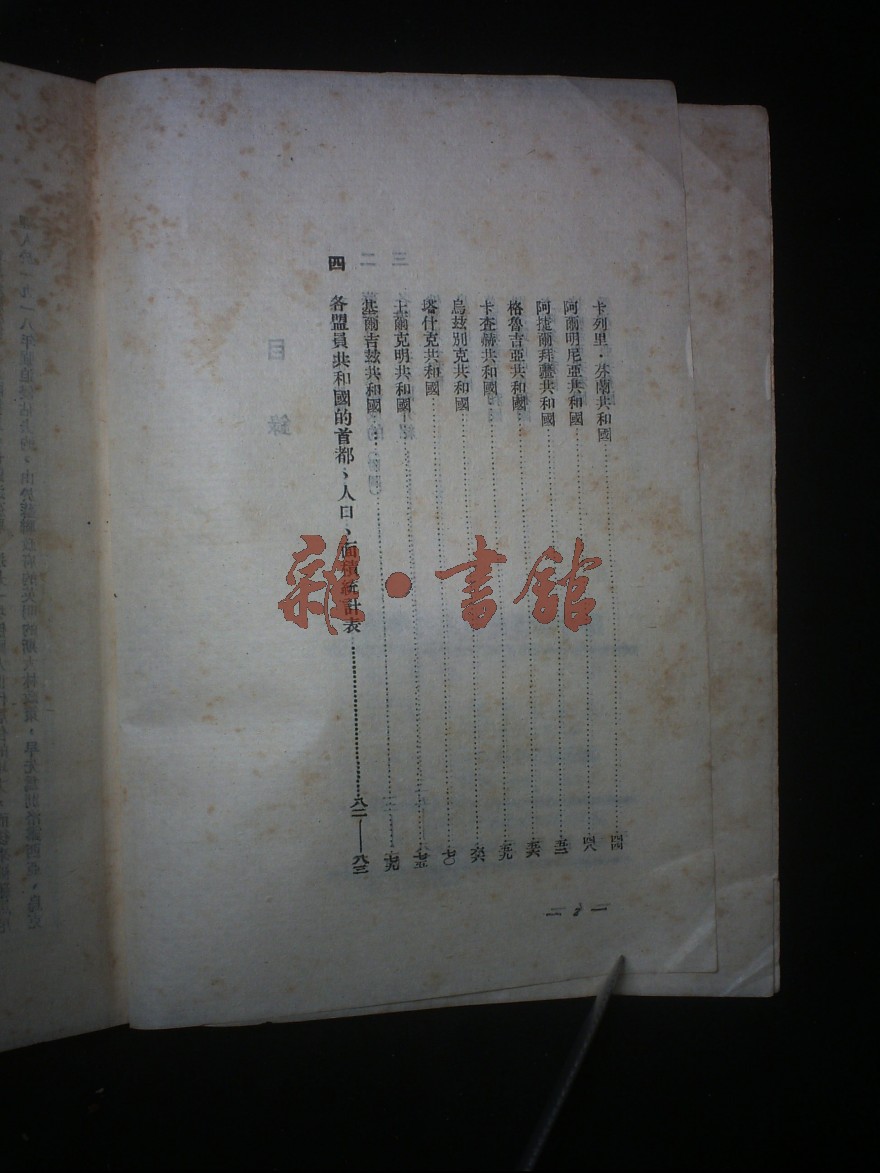 卡列里·芬蘭共和國……四四
阿爾明尼亞共和國……四八
阿捷爾拜疆共和國……五二
格魯吉亞共和國……五六
卡查赫共和國……五九
烏茲別克共和國……六六
塔什克共和國……七〇
土爾克明共和國……七五
基爾吉茲共和國……七九
四 各盟員共和國的首都、人口、面積統計表……八二——八三
雜·書館
目錄